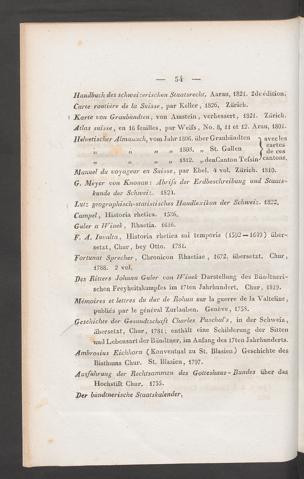 — 54 —
Handbuch des schweizerischen Staatsrechts, Aarau, 1821. 2de édition.
Carte routière de la Suisse, par Keller, 1826, Zürich.
Karte von Graubündten, von Amstein, verbessert, 1821. Zürich.
Atlas suisse, en 16 feuilles, par Weifs, No. 8, 11 et 12. Arau, 1801.
Helvetischer Almanach, vom Jahr 1806. über Graubündten
„ „ „ „ 1808. „ St. Gallen
„ „ „ „ 1812. „ den Canton Tefsin
avec les cartes de ces cantons.
Manuel du voyageur en Suisse, par Ebel. 4 vol. Zürich. 1810.
G. Meyer von Knonau: Abrifs der Erdbeschreibung und Staatskunde der Schweiz. 1824.
Lutz geographisch-statistisches Handlexikon der Schweiz. 1822,
Campel, Historia rhetica. 1536,
Guler a Winek, Rhætia. 1616.
F. A. Juvalta, Historia rhetica sui temporis (1592—1649) übersetzt, Chur, bey Otto. 1781.
Fortunat Sprecher, Chronicon Rhaetiae, 1672, übersetzt, Chur, 1786. 2 vol.
Des Ritters Johann Guler von Winek Darstellung des Bündtnerischen Freyheitskampfes im 17ten Jahrhundert. Chur, 1819.
Mémoires et lettres du duc de Rohan sur la guerre de la Valteline, publiés par le général Zurlauben. Genève, 1758.
Geschichte der Gesandschaft Charles Paschal's, in der Schweiz, übersetzt, Chur, 1781; enthält eine Schilderung der Sitten und Lebensart der Bündtner, im Anfang des 17ten Jahrhunderts.
Ambrosius Eichhorn (Konventual zu St. Blasien) Geschichte des Bisthums Chur. St. Blasien, 1797.
Ausführung der Rechtsammen des Gotteshaus-Bundes über das Hochstift Chur. 1755.
Der bündtnerische Staatskalender.